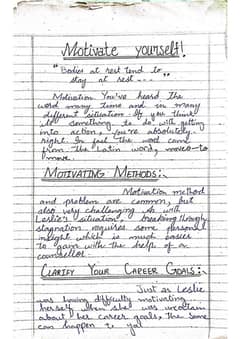 Motivate yourself!
"Bodies at rest tend to
stay at rest...."
Motivation You've heard the
word many time and in many
different situation. If you think
it something to do with getting
into action, you're absolutely
right. In fact the word came
from the Latin word, moveo-to
move.
MOTIVATING METHODS:-
Motivation method
and problem are common, but
also very challenging. As with
Leslie's situation, breaking through
stagnation requires some personal
insight which is much easier
to gain with the help of a
counsellor.
CLARIFY YOUR CAREER GOALS:-
Just as Leslie
was having difficulty motivating
herself when she was uncertain
about her career goals the same
can happen to you